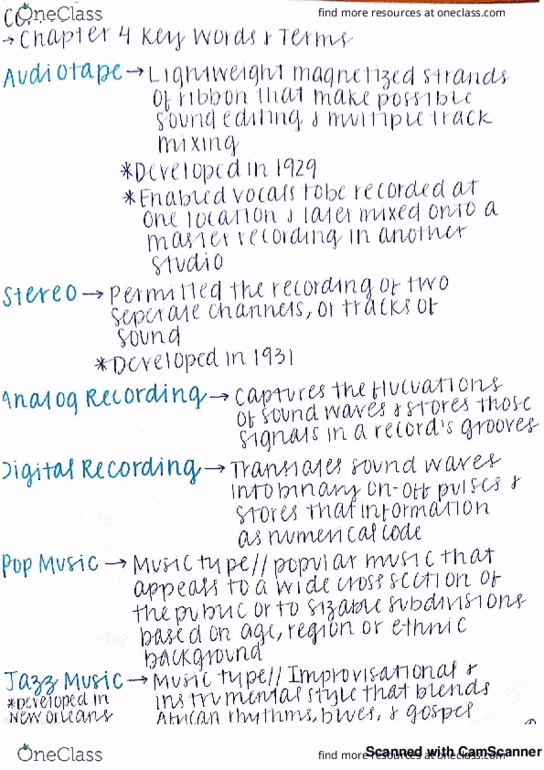 OneClass
find more resources at oneclass.com
→ Chapter 4 Key Words & Terms
Audiotape → Lightweight magnetized strands
of ribbon that make possible
sound editing & multiple track
mixing
*Developed in 1929
*Enabled vocals to be recorded at
one location & later mixed onto a
master recording in another
studio
Stereo → Permitted the recording of two
seperate channels, or tracks of
sound
*Developed in 1931
Analog Recording → captures the fluctuations
of sound waves & stores those
signals in a record's grooves
Digital Recording → Translates sound waves
into binary on-off pulses &
stores that information
as numerical code
Pop Music → Music type// popular music that
appeals to a wide cross section of
the public or to sizable subdivisions
based on age, region or ethnic
background
Jazz Music → Music type// Improvisational &
*Developed in New Orleans
instrumental style that blends
African rhythms, blues, & gospel
OneClass
find more resources at oneclass.com
Scanned with CamScanner